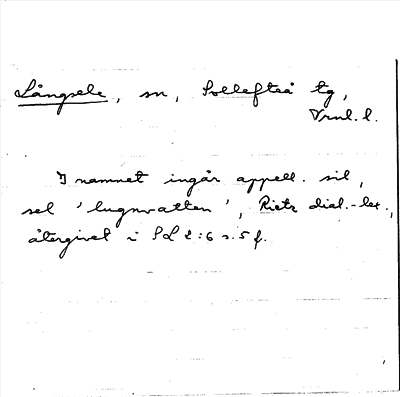 Långsele, sn, Sollefteå tg,
Vrnl. l.
I namnet ingår appell. sil,
sel 'lugnvatten', Rietz dial.-lex.,
återgivet i SOL 2:6 s. 5 f.